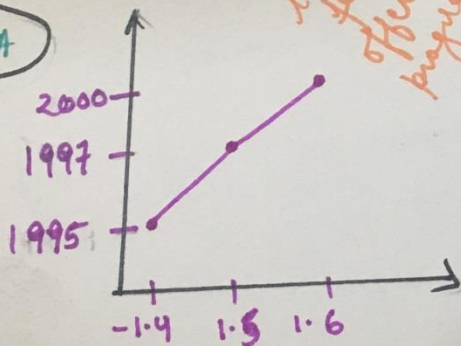 A
2000
1997
1995
-1.4 1.5 1.6